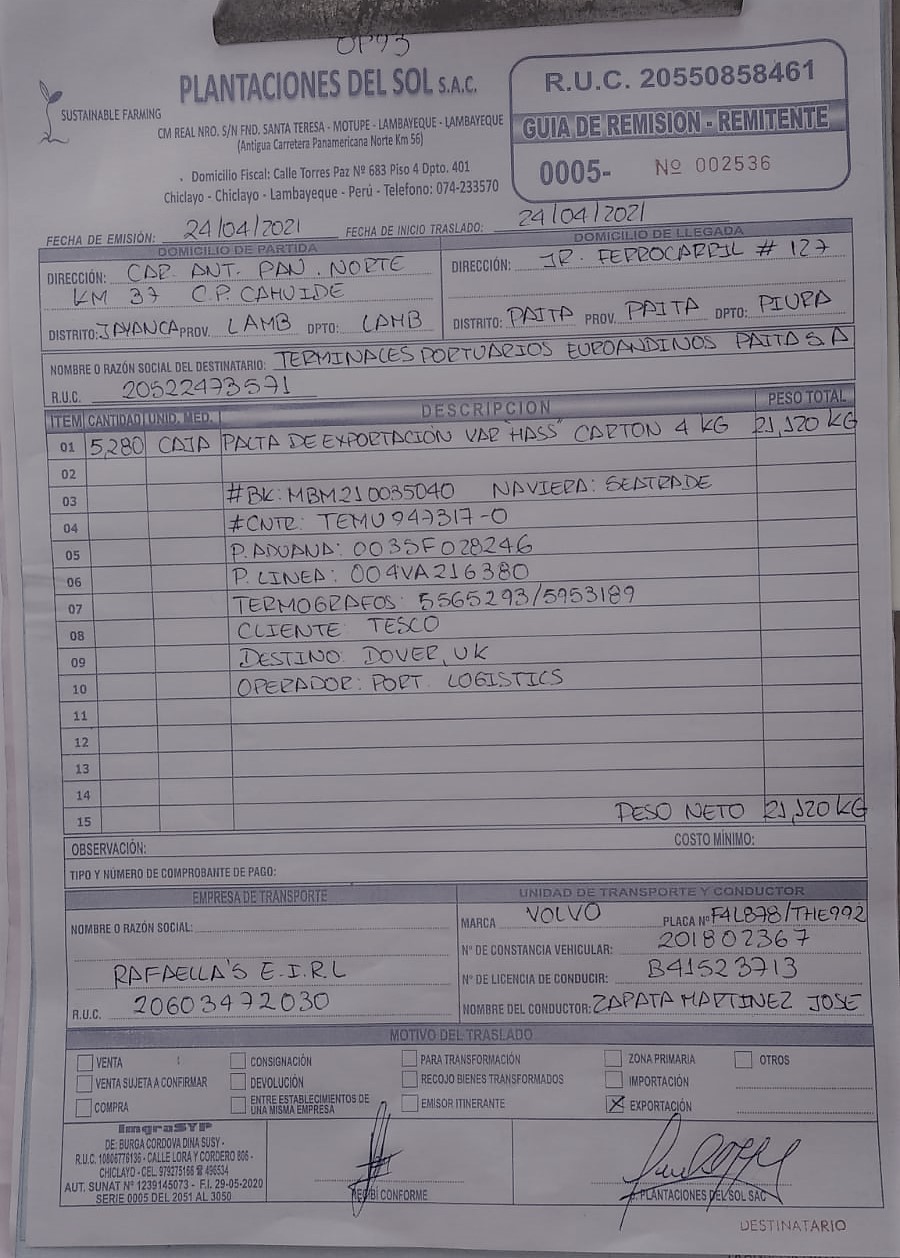 OP93
PLANTACIONES DEL SOL S.A.C.
SUSTAINABLE FARMING
CM REAL NRO. S/N FND. SANTA TERESA - MOTUPE - LAMBAYEQUE - LAMBAYEQUE
(Antigua Carretera Panamericana Norte Km 56)
Domicilio Fiscal: Calle Torres Paz Nº 683 Piso 4 Dpto. 401
Chiclayo - Chiclayo - Lambayeque - Perú - Telefono: 074-233570
R.U.C. 20550858461
GUIA DE REMISION - REMITENTE
0005- Nº 002536
FECHA DE EMISIÓN: 24/04/2021 FECHA DE INICIO TRASLADO: 24/04/2021
DOMICILIO DE PARTIDA
DIRECCIÓN: CAR. ANT. PAN. NORTE
KM 37 C.P. CAHUIDE
DISTRITO: JAYANCA PROV. LAMB DPTO: LAMB
DOMICILIO DE LLEGADA
DIRECCIÓN: JR. FERROCARRIL # 127
DISTRITO: PAITA PROV. PAITA DPTO: PIURA
NOMBRE O RAZÓN SOCIAL DEL DESTINATARIO: TERMINALES PORTUARIOS EUROANDINOS PAITA S A
R.U.C. 20522473571
ITEM CANTIDAD UNID. MED. DESCRIPCION PESO TOTAL
01 5,280 CAJA PALTA DE EXPORTACIÓN VAR "HASS" CARTON 4 KG 21,120 KG
02
03 #BK: MBM210035040 NAVIERA: SEATRADE
04 #CNTR: TEMU 947317-0
05 P. ADUANA: 0035F028246
06 P. LINEA: 004VA216380
07 TERMOGRAFOS: 5565293/5953189
08 CLIENTE: TESCO
09 DESTINO: DOVER, UK
10 OPERADOR: PORT. LOGISTICS
11
12
13
14
15 PESO NETO 21,120 KG
OBSERVACIÓN: COSTO MÍNIMO:
TIPO Y NÚMERO DE COMPROBANTE DE PAGO:
EMPRESA DE TRANSPORTE
NOMBRE O RAZÓN SOCIAL:
RAFAELLA'S E.I.R.L
R.U.C. 20603472030
UNIDAD DE TRANSPORTE Y CONDUCTOR
MARCA VOLVO PLACA Nº F4L878/THE992
N° DE CONSTANCIA VEHICULAR: 201802367
N° DE LICENCIA DE CONDUCIR: B41523713
NOMBRE DEL CONDUCTOR: ZAPATA MARTINEZ JOSE
MOTIVO DEL TRASLADO
VENTA CONSIGNACIÓN PARA TRANSFORMACIÓN ZONA PRIMARIA OTROS
VENTA SUJETA A CONFIRMAR DEVOLUCIÓN RECOJO BIENES TRANSFORMADOS IMPORTACIÓN
COMPRA ENTRE ESTABLECIMIENTOS DE UNA MISMA EMPRESA EMISOR ITINERANTE X EXPORTACIÓN
ImgraSYP
DE: BURGA CORDOVA DINA SUSY -
R.U.C. 10806776136 - CALLE LORA Y CORDERO 806 -
CHICLAYO - CEL. 979275166 ☎ 496534
AUT. SUNAT Nº 1239145073 - F.I. 29-05-2020
SERIE 0005 DEL 2051 AL 3050
RECIBÍ CONFORME
P. PLANTACIONES DEL SOL SAC
DESTINATARIO